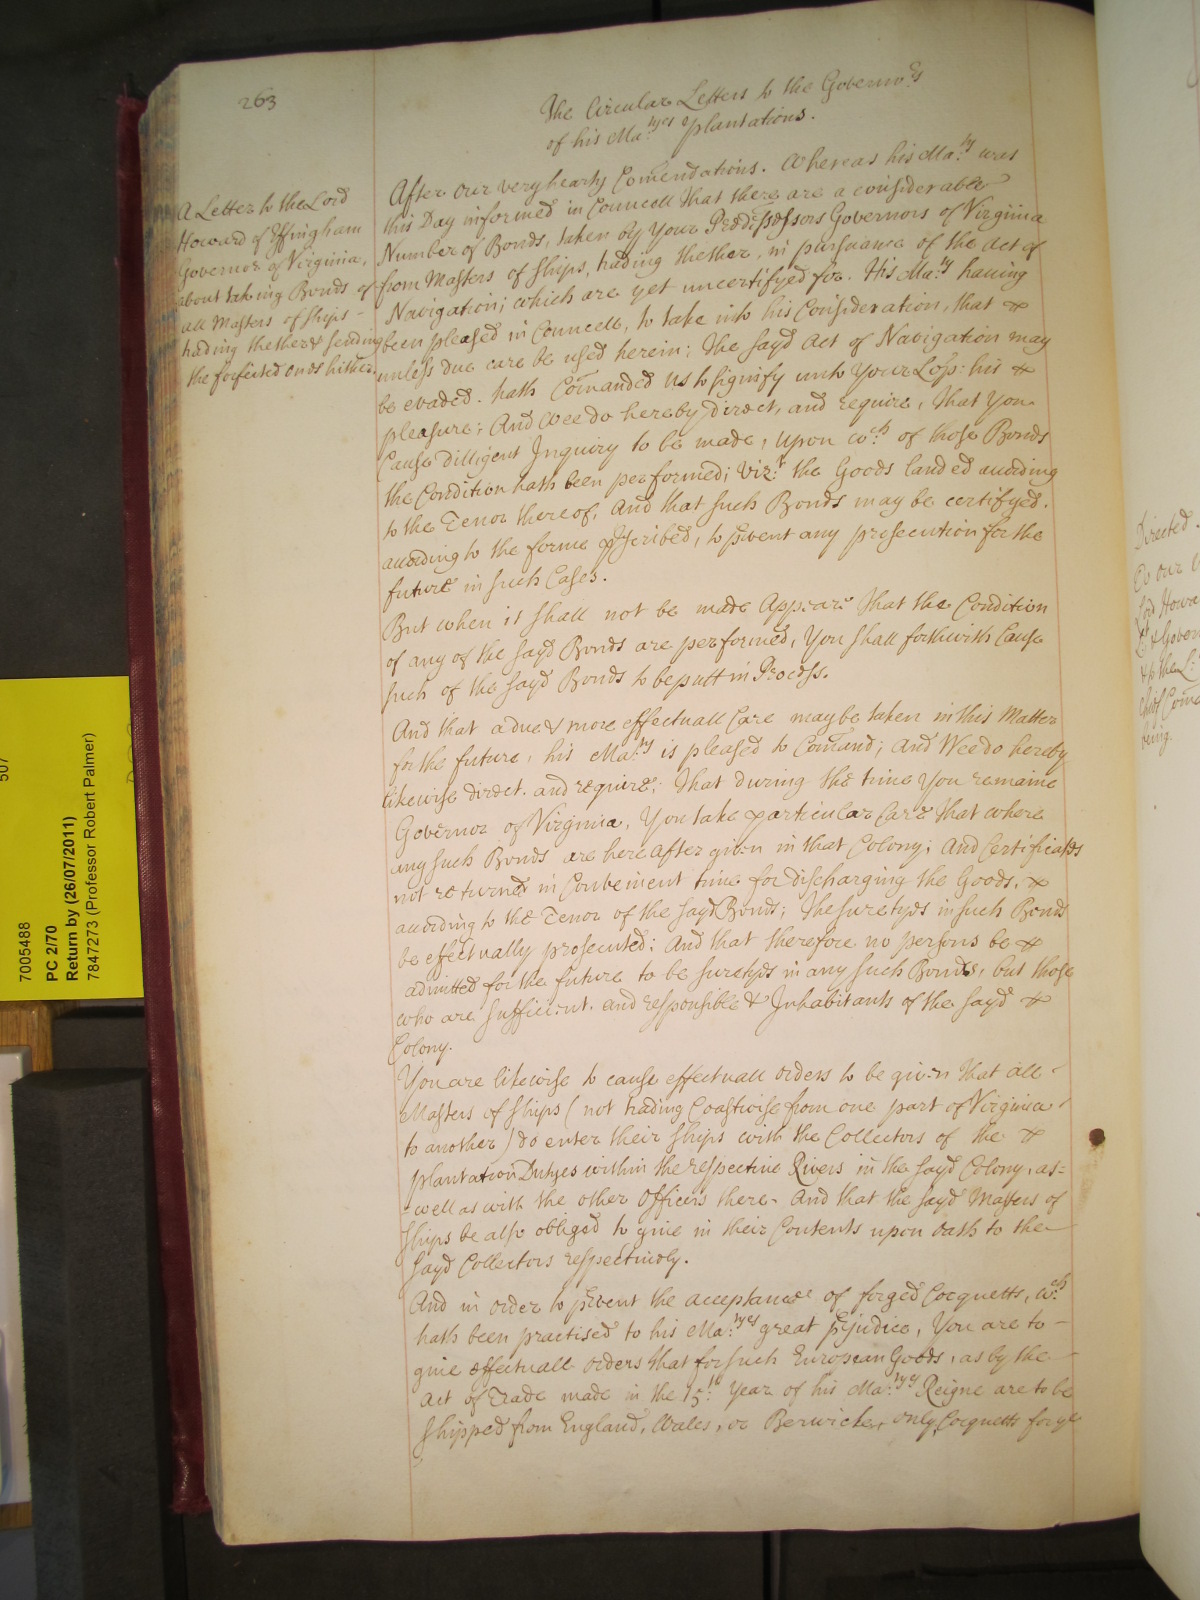 263
The Circular Letters to the Governors
of his Ma:tyes plantations.
A Letter to the Lord
Howard of Effingham
Governor of Virginia,
about taking Bonds of
all Masters of ships -
trading thether & sending
the forfeited ones hither.
After our very hearty Comendations. Whereas his Ma:ty was
this Day informed in Councell that there are a considerable
Number of Bonds, taken by your Predecessors Governors of Virginia
from Masters of ships, trading thether, in pursuance of the Act of
Navigation; which are yet uncertifyed for. His Ma:ty having
been pleased in Councell, to take into his Consideration, that &
unless due care be used herein; The sayd Act of Navigation may
be evaded. hath Comanded us to signify unto your Lopp: his &
pleasure; And wee do hereby direct, and require, That you
Cause dilligent Inquiry to be made, upon wch of those Bonds
the Condition hath been performed; vizt the Goods landed according
to the Tenor thereof, And that such Bonds may be certifyed.
according to the forme p̱scribed, to p̱vent any prosecution for the
future in such Cases.
But when it shall not be made Appeare that the Condition
of any of the sayd Bonds are performed, You shall forthwith Cause
such of the sayd Bonds to be putt in Process.
And that a due & more effectuall Care may be taken in this Matter
for the future, his Ma:ty is pleased to Comand; And Wee do hereby
likewise direct. and require; That during the time you remaine
Governor of Virginia, You take particular Care that where
any such Bonds are hereafter given in that Colony; And Certificates
not returned in Convenient time for discharging the Goods, &
according to the Tenor of the sayd Bonds; The suretyes in such Bonds
be effectually prosecuted; And that therefore no persons be &
admitted for the future to be suretyes in any such Bonds, but those
who are sufficient. and responsible & Inhabitants of the sayd &
Colony.
You are likewise to cause effectuall orders to be given that all -
Masters of ships (not trading Coastwise from one part of Virginia
to another) do enter their ships with the Collectors of the &
plantation Dutyes within the respective Rivers in the sayd Colony, as=
-well as with the other Officers there. And that the sayd Masters of
ships be also obliged to give in their Contents upon oath to the -
sayd Collectors respectively.
And in order to p̱vent the acceptance of forged Cocquetts, wch
hath been practised to his Ma:tyes great p̱judice, You are to -
give effectuall orders that for such European Goods, as by the -
Act of Trade made in the 15:th Year of his Ma:tyes Reigne are to be
shipped from England, Wales, or Berwicke, only Cocquetts for ye
Directed
To our
Lord Howa
Lt & Gover
& to the L:
Chief Come
being.
507
7005488
PC 2/70
Return by (26/07/2011)
7847273 (Professor Robert Palmer)